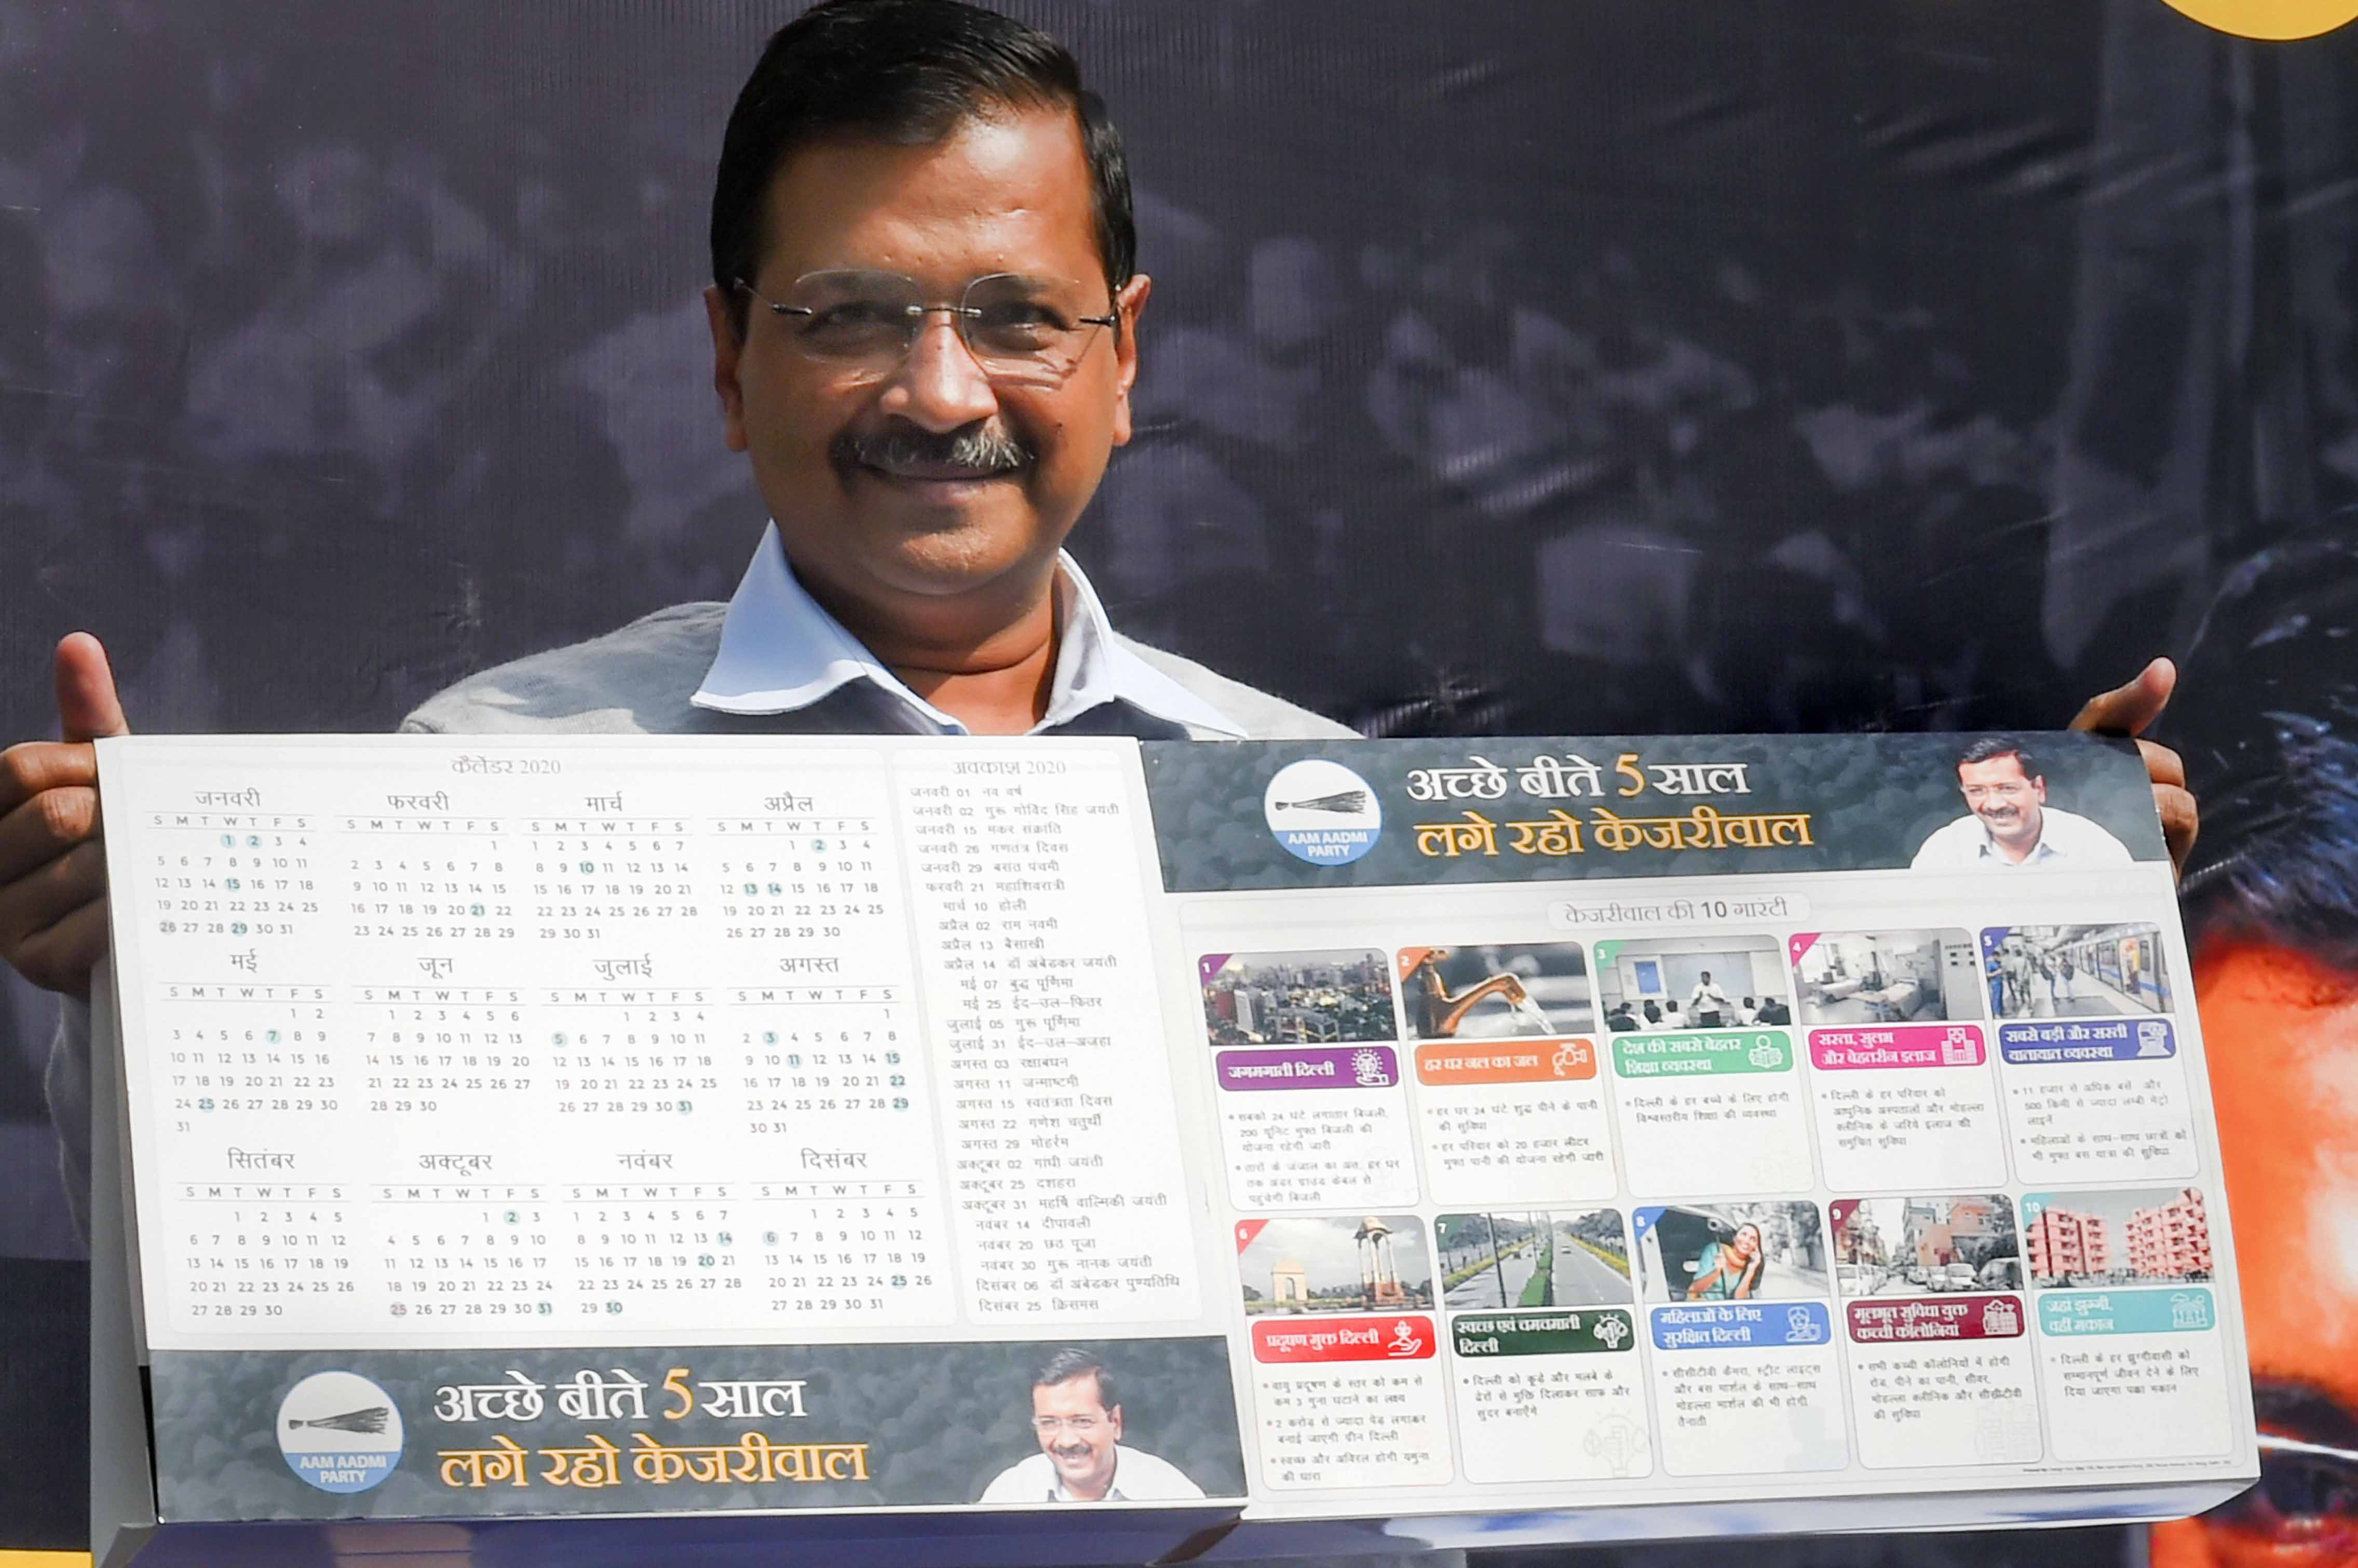 कैलेंडर 2020
जनवरी
S M T W T F S
1 2 3 4
5 6 7 8 9 10 11
12 13 14 15 16 17 18
19 20 21 22 23 24 25
26 27 28 29 30 31
फरवरी
S M T W T F S
1
2 3 4 5 6 7 8
9 10 11 12 13 14 15
16 17 18 19 20 21 22
23 24 25 26 27 28 29
मार्च
S M T W T F S
1 2 3 4 5 6 7
8 9 10 11 12 13 14
15 16 17 18 19 20 21
22 23 24 25 26 27 28
29 30 31
अप्रैल
S M T W T F S
1 2 3 4
5 6 7 8 9 10 11
12 13 14 15 16 17 18
19 20 21 22 23 24 25
26 27 28 29 30
मई
S M T W T F S
1 2
3 4 5 6 7 8 9
10 11 12 13 14 15 16
17 18 19 20 21 22 23
24 25 26 27 28 29 30
31
जून
S M T W T F S
1 2 3 4 5 6
7 8 9 10 11 12 13
14 15 16 17 18 19 20
21 22 23 24 25 26 27
28 29 30
जुलाई
S M T W T F S
1 2 3 4
5 6 7 8 9 10 11
12 13 14 15 16 17 18
19 20 21 22 23 24 25
26 27 28 29 30 31
अगस्त
S M T W T F S
1
2 3 4 5 6 7 8
9 10 11 12 13 14 15
16 17 18 19 20 21 22
23 24 25 26 27 28 29
30 31
सितंबर
S M T W T F S
1 2 3 4 5
6 7 8 9 10 11 12
13 14 15 16 17 18 19
20 21 22 23 24 25 26
27 28 29 30
अक्टूबर
S M T W T F S
1 2 3
4 5 6 7 8 9 10
11 12 13 14 15 16 17
18 19 20 21 22 23 24
25 26 27 28 29 30 31
नवंबर
S M T W T F S
1 2 3 4 5 6 7
8 9 10 11 12 13 14
15 16 17 18 19 20 21
22 23 24 25 26 27 28
29 30
दिसंबर
S M T W T F S
1 2 3 4 5
6 7 8 9 10 11 12
13 14 15 16 17 18 19
20 21 22 23 24 25 26
27 28 29 30 31
अवकाश 2020
जनवरी 01 नव वर्ष
जनवरी 02 गुरू गोविंद सिंह जयंती
जनवरी 15 मकर संक्राति
जनवरी 26 गणतंत्र दिवस
जनवरी 29 बसंत पंचमी
फरवरी 21 महाशिवरात्री
मार्च 10 होली
अप्रैल 02 राम नवमी
अप्रैल 13 बैसाखी
अप्रैल 14 डॉ अंबेडकर जयंती
मई 07 बुद्ध पूर्णिमा
मई 25 ईद-उल-फितर
जुलाई 05 गुरू पूर्णिमा
जुलाई 31 ईद-उल-अजहा
अगस्त 03 रक्षाबंधन
अगस्त 11 जन्माष्टमी
अगस्त 15 स्वतंत्रता दिवस
अगस्त 22 गणेश चतुर्थी
अगस्त 29 मोहर्रम
अक्टूबर 02 गांधी जयंती
अक्टूबर 25 दशहरा
अक्टूबर 31 महर्षि वाल्मिकी जयंती
नवंबर 14 दीपावली
नवंबर 20 छठ पूजा
नवंबर 30 गुरू नानक जयंती
दिसंबर 06 डॉ अंबेडकर पुण्यतिथि
दिसंबर 25 क्रिसमस
AAM AADMI
PARTY
अच्छे बीते 5 साल
लगे रहो केजरीवाल
AAM AADMI
PARTY
अच्छे बीते 5 साल
लगे रहो केजरीवाल
केजरीवाल की 10 गारंटी
1
जगमगाती दिल्ली
• सबको 24 घंटे लगातार बिजली,
200 यूनिट मुफ्त बिजली की
योजना रहेगी जारी
• तारों के जंजाल का अंत, हर घर
तक अंडर ग्राउंड केबल से
पहुंचेगी बिजली
2
हर घर नल का जल
• हर घर 24 घंटे शुद्ध पीने के पानी
की सुविधा
• हर परिवार को 20 हजार लीटर
मुफ्त पानी की योजना रहेगी जारी
3
देश की सबसे बेहतर
शिक्षा व्यवस्था
• दिल्ली के हर बच्चे के लिए होगी
विश्वस्तरीय शिक्षा की व्यवस्था
4
सस्ता, सुलभ
और बेहतरीन इलाज
• दिल्ली के हर परिवार को
आधुनिक अस्पतालों और मोहल्ला
क्लीनिक के जरिये इलाज की
समुचित सुविधा
5
सबसे बड़ी और सस्ती
यातायात व्यवस्था
• 11 हजार से अधिक बसें और
500 किमी से ज्यादा लम्बी मेट्रो
लाइनें
• महिलाओं के साथ-साथ छात्रों को
भी मुफ्त बस यात्रा की सुविधा
6
प्रदूषण मुक्त दिल्ली
• वायु प्रदूषण के स्तर को कम से
कम 3 गुना घटाने का लक्ष्य
• 2 करोड़ से ज्यादा पेड़ लगाकर
बनाई जाएगी ग्रीन दिल्ली
• स्वच्छ और अविरल होगी यमुना
की धारा
7
स्वच्छ एवं चमचमाती
दिल्ली
• दिल्ली को कूड़े और मलबे के
ढेरों से मुक्ति दिलाकर साफ और
सुंदर बनाएँगे
8
महिलाओं के लिए
सुरक्षित दिल्ली
• सीसीटीवी कैमरा, स्ट्रीट लाइट्स
और बस मार्शल के साथ-साथ
मोहल्ला मार्शल की भी होगी
तैनाती
9
मूलभूत सुविधा युक्त
कच्ची कॉलोनियां
• सभी कच्ची कॉलोनियों में होगी
रोड, पीने का पानी, सीवर,
मोहल्ला क्लीनिक और सीसीटीवी
की सुविधा
10
जहां झुग्गी,
वहीं मकान
• दिल्ली के हर झुग्गीवासी को
सम्मानपूर्ण जीवन देने के लिए
दिया जाएगा पक्का मकान